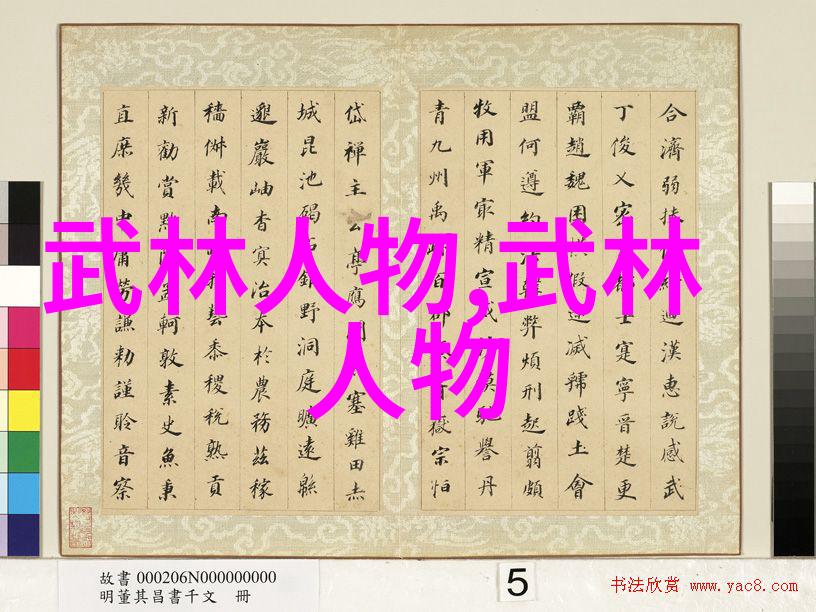 武林人物,武林
人物
合濟弱扶迴漢惠說感武
丁俊乂密士寔寧晉楚更
霸趙魏困橫假途滅虢踐土會
盟何遵約法韓弊煩刑起翦頗
牧用軍最精宣威漠馳譽丹
青九州禹跡百郡嶽宗恒
岱禪主云亭鴈門塞雞田赤
城昆池碣石鉅野洞庭曠遠緜
邈巖岫杳冥治本於農務茲稼
穡俶載南我藝黍稷稅熟貢
新勸賞黜陟孟軻敦素史魚秉
直庶幾中庸勞謙勑謹聆音察
故書 000206N000000000
明董其昌書千文 冊
5
书法欣赏 www.yac8.com